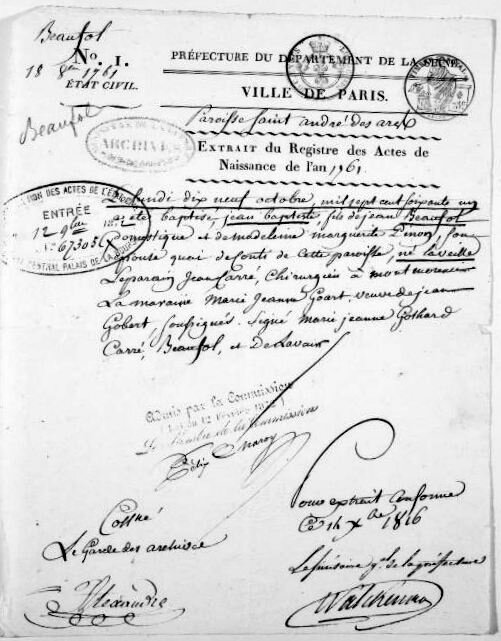 Beaufol
No. 1.
18 8bre 1761
ÉTAT CIVIL.
PRÉFECTURE DU DÉPARTEMENT DE LA SEINE.
VILLE DE PARIS.
Beaufol
Paroisse Saint andré des arcs
ARCHIVES
EXTRAIT du Registre des Actes de
Naissance de l'an 1761.
Le lundi dix neuf octobre, mil sept cent soixante un
a été baptisé, jean baptiste, fils de jean Beaufol
Domestique et de madeleine marguerite Pinon, son
épouse quai de conti de cette paroisse, né la veille
Le parain Jean Carré, Chirurgien à montmorency
La maraine Marie Jeanne Goart veuve de jean
Gobert, soussignés. Signé Marie jeanne Gothard
Carré, Beaufol, et De Lavaux
ENTRÉE
12 9bre 187
673056
CENTRAL PALAIS DE LA
Admis par la Commission
Loi du 12 Février 1872
Le Membre de la Commission
Félix
Collné
Le Garde des archives
Alexandre
Pour extrait conforme
Ce 14 Xbre 1816
Le Secrétaire gal de la préfecture
Walckenaer